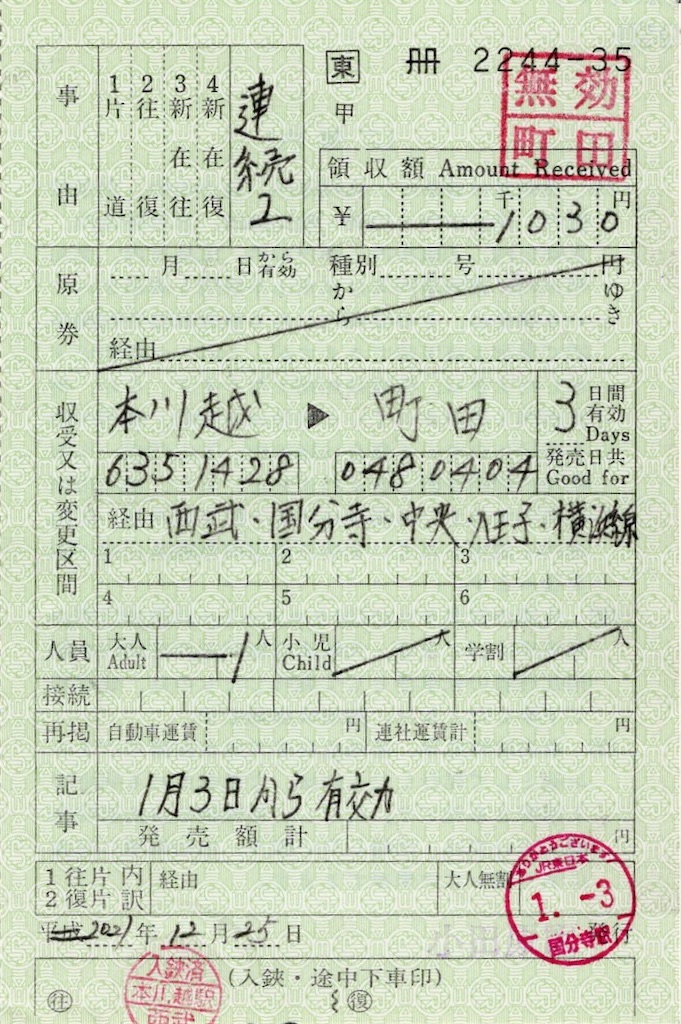 東 冊 2244-35
無効
町田
事由 1片道 2往復 3新在往 4新在復 連続2
甲
領収額 Amount Received
¥ 千 1030 円
原券 月 日から有効 種別 号 円
から ゆき
経由
収受又は変更区間 本川越 ▶ 町田 3日間有効 Days
6351428 0480404 発売日共 Good for
経由 西武・国分寺・中央・八王子・横浜線
1 2 3
4 5 6
人員 大人 Adult 1人 小児 Child 人 学割 人
接続
再掲 自動車運賃 円 連社運賃計 円
記事 1月3日から有効
発売額計 円
1往片 内 経由 大人無割
2復片 訳
ありがとうございます
JR東日本
1.-3
国分寺駅
平成 2021年12月25日 発行
(入鋏・途中下車印)
往 復
入鋏済
本川越駅
西武